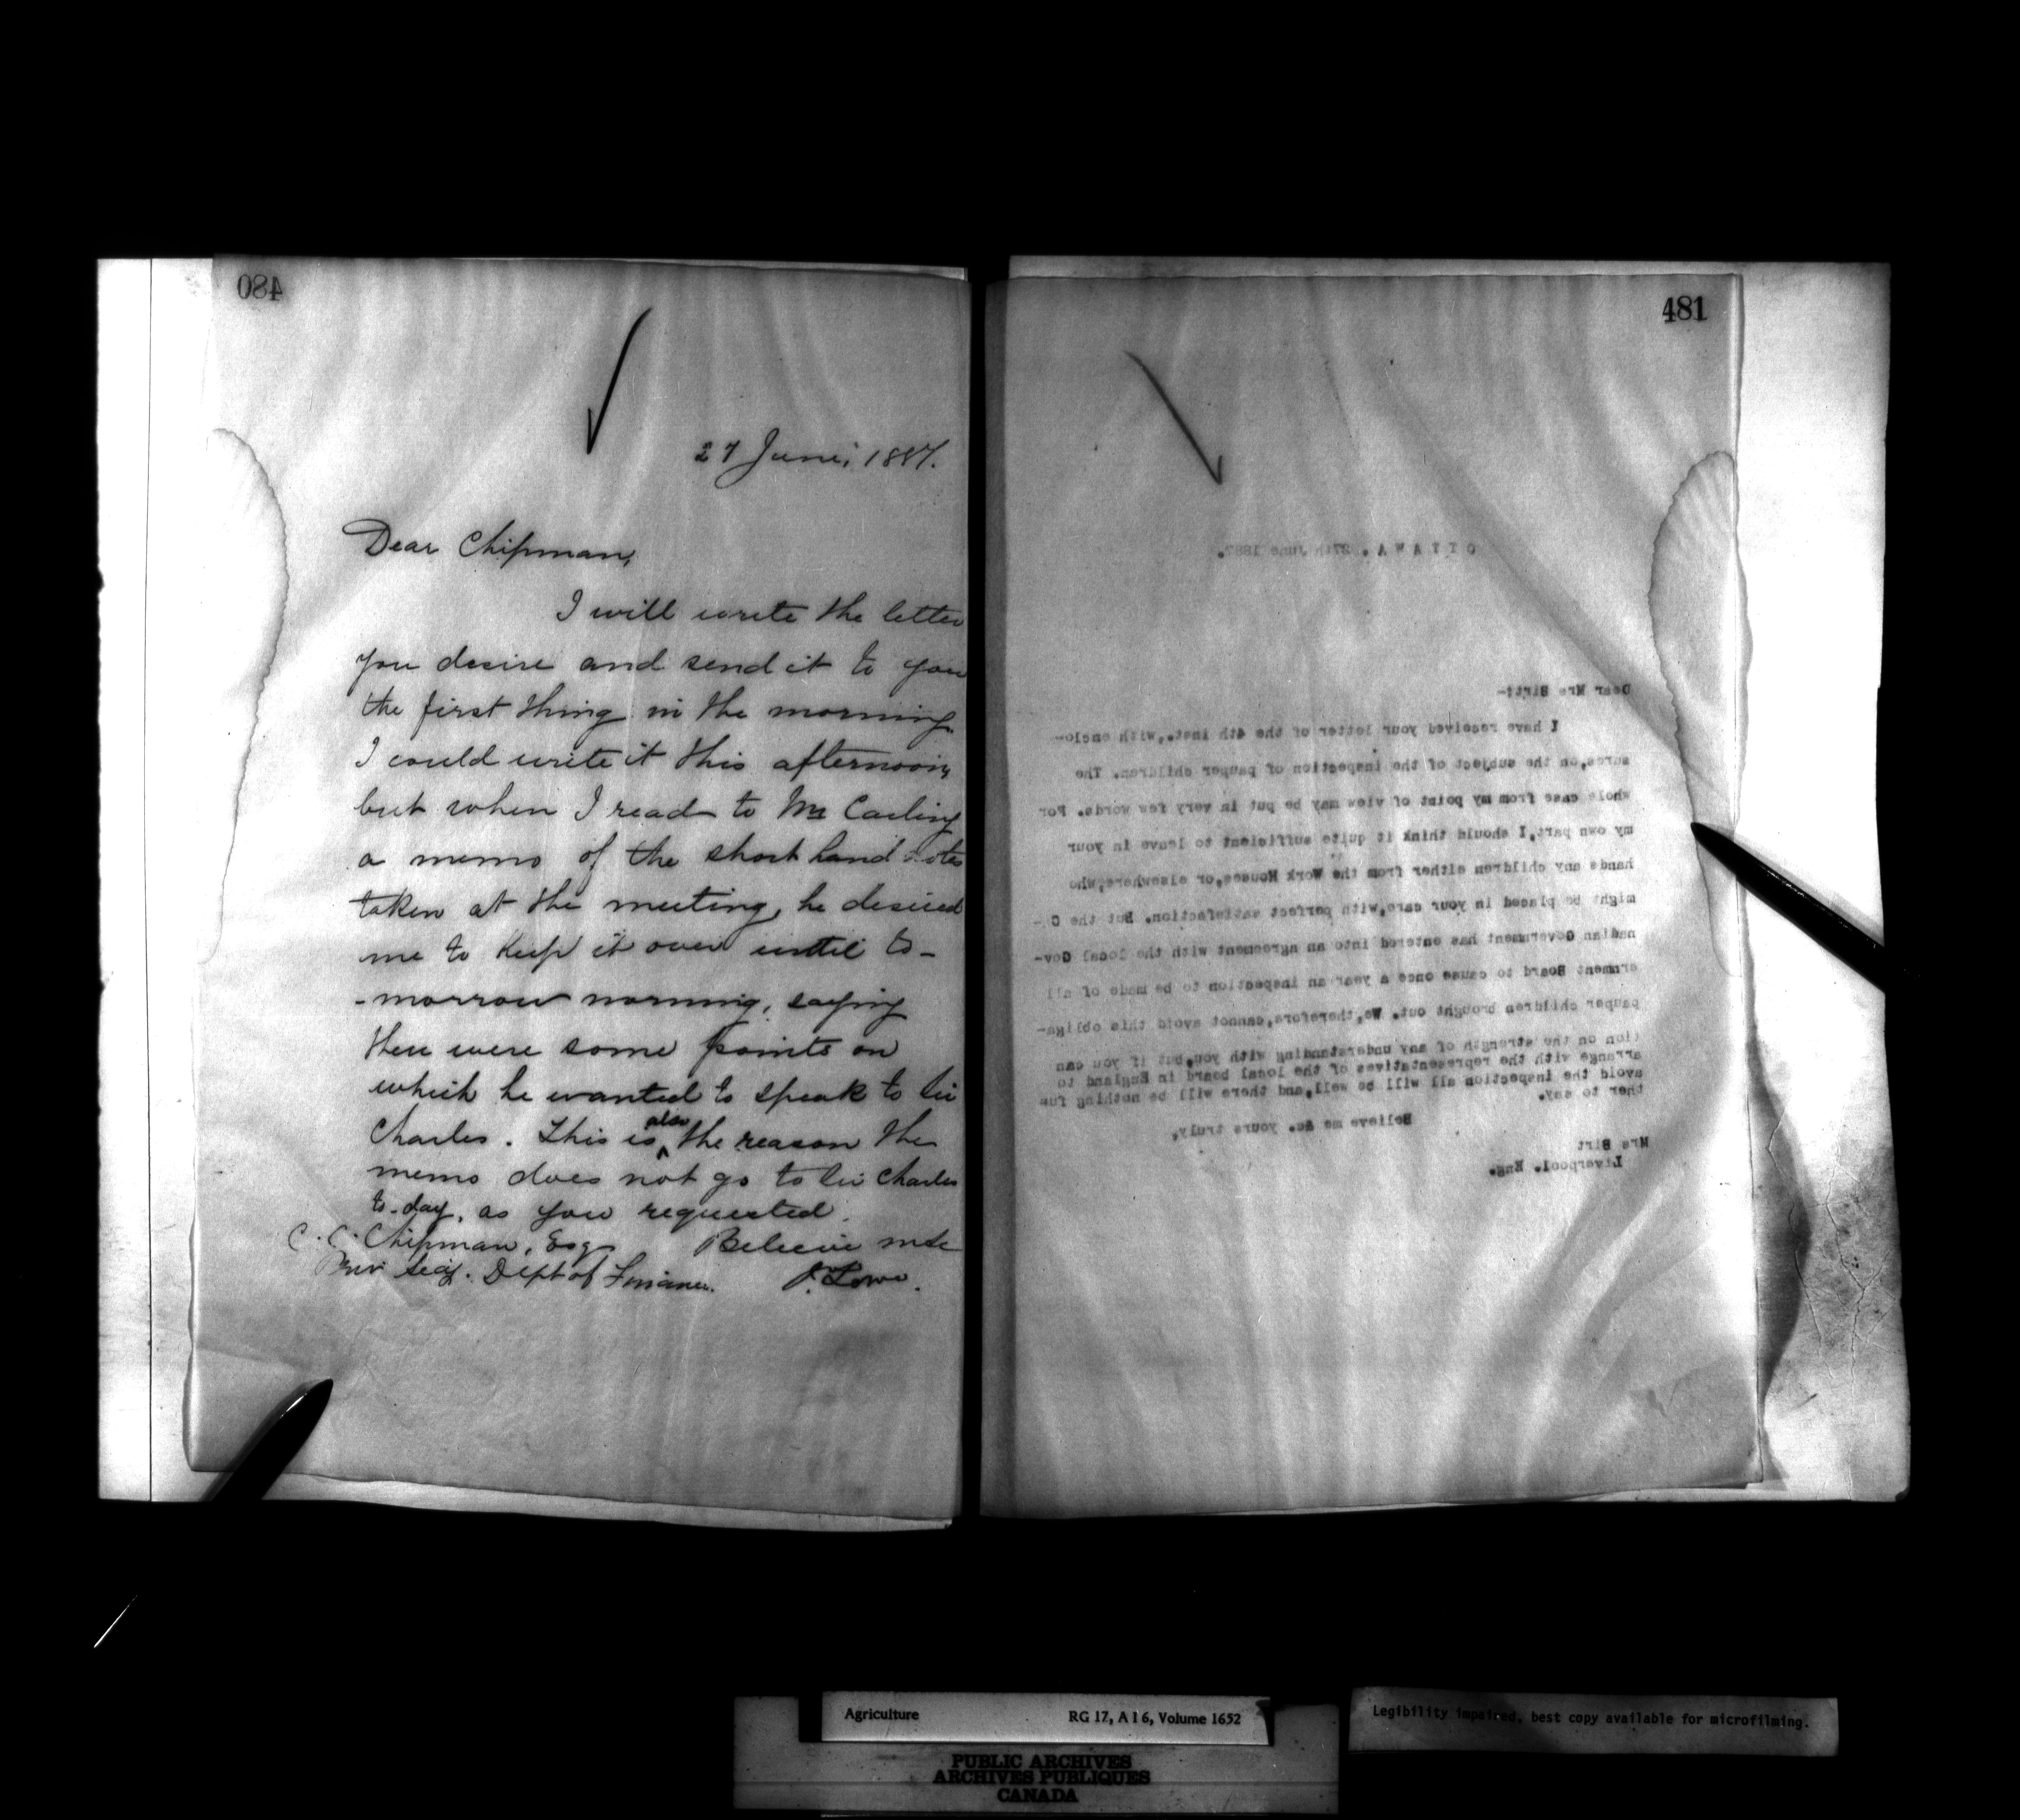 480
27 June, 1887.
Dear Chipman,
I will write the letter
you desire and send it to you
the first thing in the morning.
I could write it this afternoon,
but when I read to Mr Carling
a memo of the short hand notes
taken at the meeting, he desired
me to keep it over until to-
-morrow morning, saying
there were some points on
which he wanted to speak to Sir
Charles. This is also the reason the
memo does not go to Sir Charles
to-day, as you requested.
C. C. Chipman, Esq Believe me
Priv Secy. Dept of Finance. J. Lowe.
481
OTTAWA. 27th June 1887.
Dear Mrs Birt:-
I have received your letter of the 4th inst.,with enclo-
sures,on the subject of the inspection of pauper children. The
whole case from my point of view may be put in very few words. For
my own part,I should think it quite sufficient to leave in your
hands any children either from the Work Houses,or elsewhere,who
might be placed in your care,with perfect satisfaction. But the C -
nadian Government has entered into an agreement with the local Gov-
ernment Board to cause once a year an inspection to be made of all
pauper children brought out. We,therefore,cannot avoid this obliga-
tion on the strength of any understanding with you,but if you can
arrange with the representatives of the local board in England to
avoid the inspection all will be well,and there will be nothing fur
ther to say.
Believe me &c. yours truly,
Mrs Birt
Liverpool. Eng.
Agriculture RG 17, A I 6, Volume 1652
Legibility impaired, best copy available for microfilming.
PUBLIC ARCHIVES
ARCHIVES PUBLIQUES
CANADA